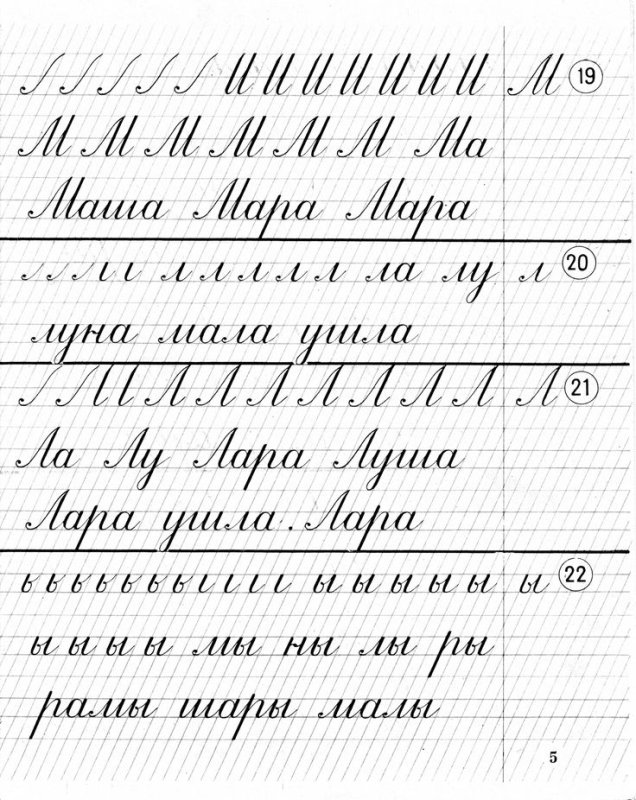 М 19
М М М М М М Ма
Маша Мара Мара
л л л л л ла лу л 20
луна мала ушла
Л Л Л Л Л Л Л Л 21
Ла Лу Лара Луша
Лара ушла. Лара
ь ь ь ь ь ь ь ы ы ы ы ы ы 22
ы ы ы ы мы ны лы ры
рамы шары малы
5